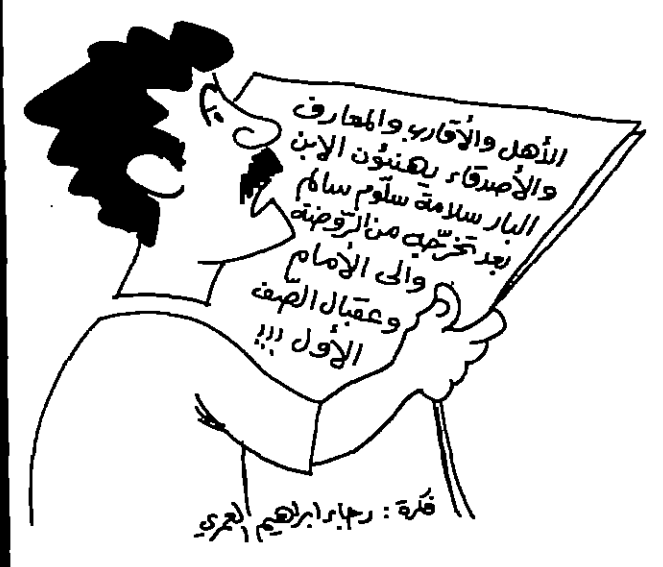 الأهل والأقارب والمعارف
والأصدقاء يهنئون الابن
البار سلامة سلّوم سالم
بعد تخرّجه من الرّوضة
والى الأمام
وعقبال الصف
الأول !!!
فكرة : رجاء ابراهيم العمري